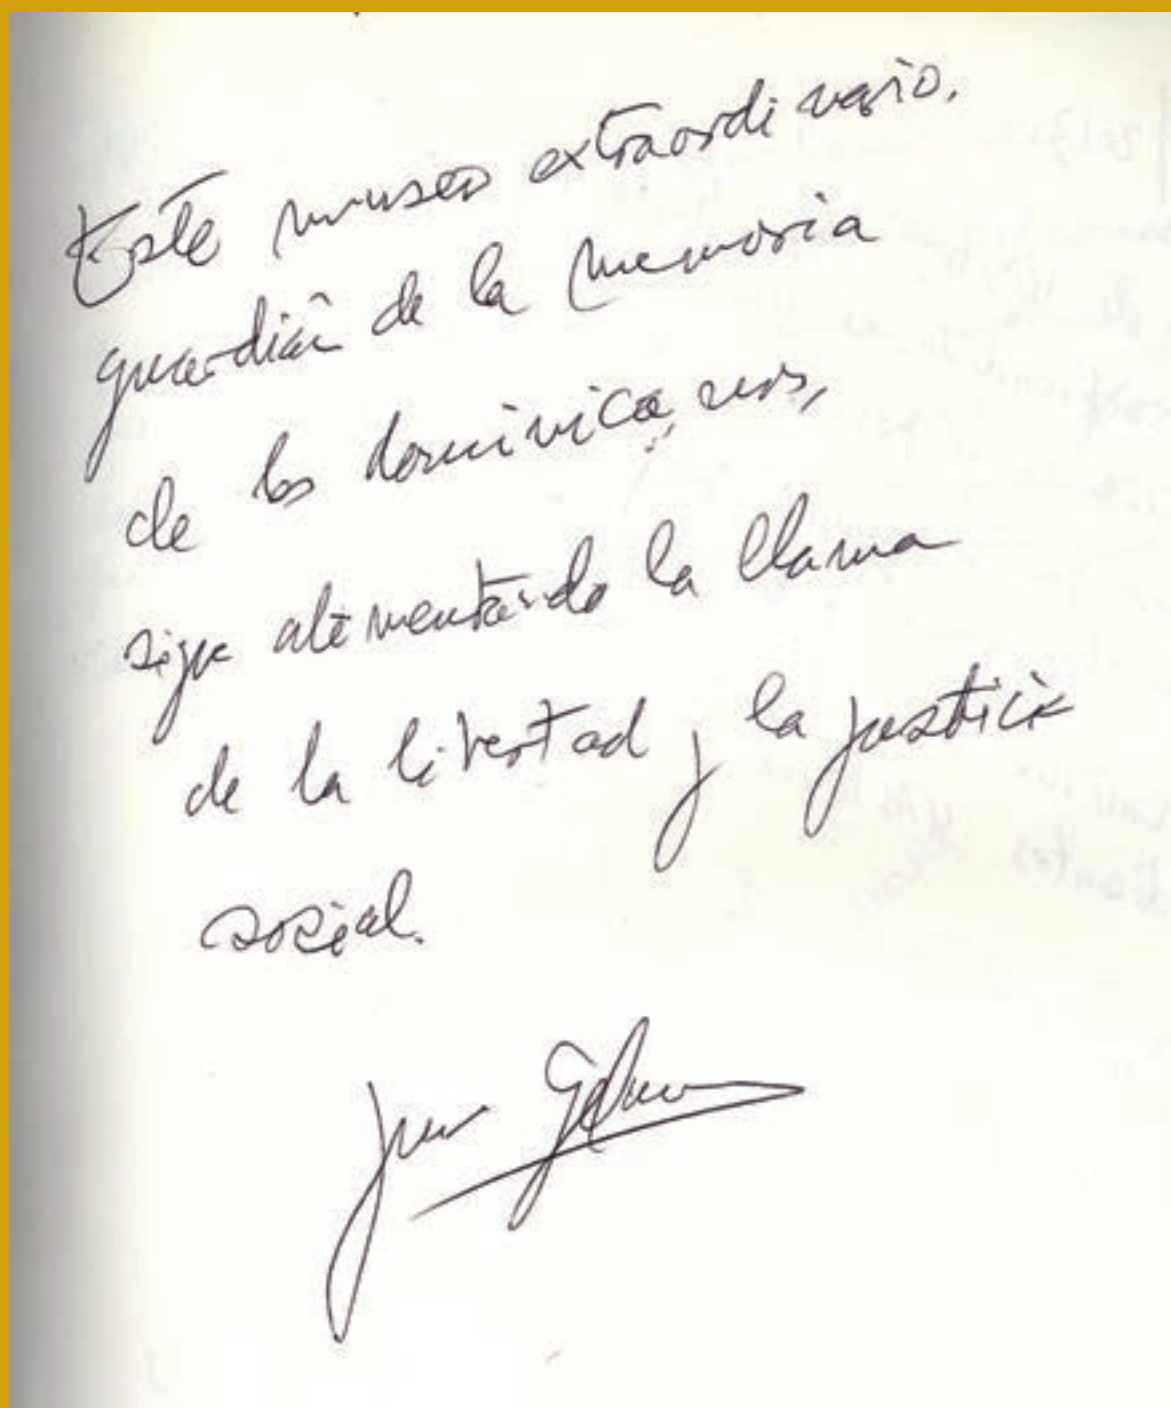 Este museo extraordinario,
guardián de la memoria
de los dominicanos,
sigue alimentando la llama
de la libertad y la justicia
social.
Juan Gelman